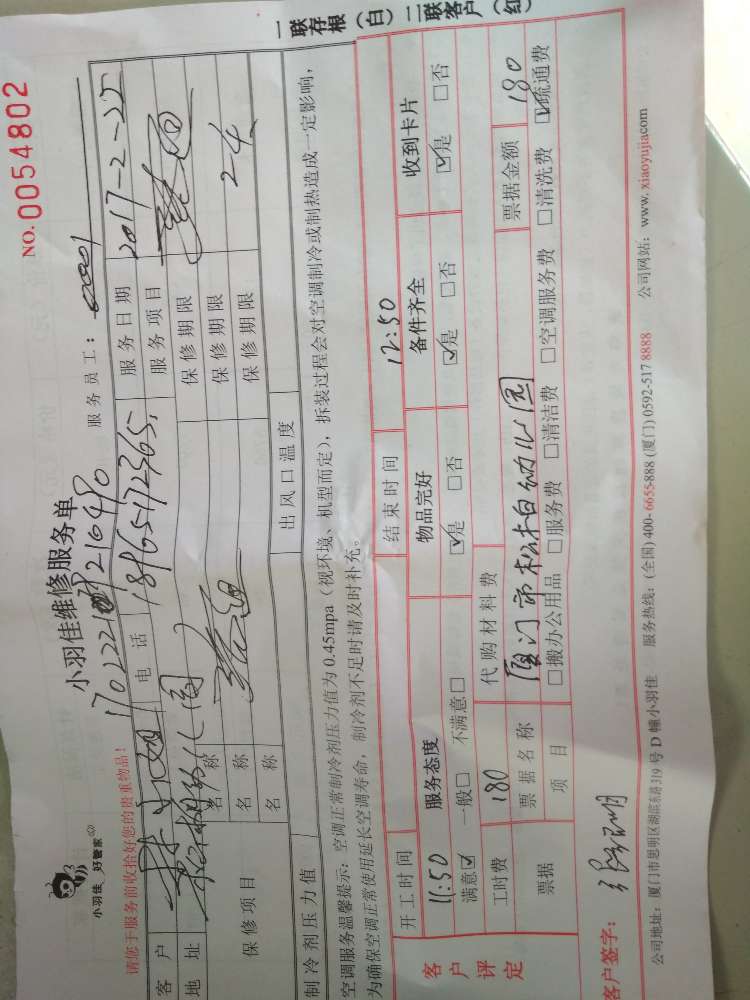 小羽佳 好管家
小羽佳维修服务单
NO. 0054802
请您于服务前收拾好您的贵重物品!
服务员工:
客户 电话 18965172365 服务日期 2017-2-22
地址 服务项目
保修项目 名称 保修期限
名称 保修期限 24
名称 保修期限
制冷剂压力值 出风口温度
空调服务温馨提示: 空调正常制冷剂压力值为 0.45mpa (视环境、机型而定), 拆装过程会对空调制冷或制热造成一定影响,
为确保空调正常使用延长空调寿命, 制冷剂不足时请及时补充。
一联存根(白) 二联客户(红)
客户评定
开工时间 11:50 结束时间 12:50
服务态度 物品完好 备件齐全 收到卡片
满意☑ 一般□ 不满意□ ☑是 □否 ☑是 □否 ☑是 □否
工时费 180 代购材料费
票据 票据名称 厦门市松柏幼儿园 票据金额 180
项目 □搬办公用品 □服务费 □清洁费 □空调服务费 □清洗费 ☑疏通费
客户签字:
公司地址: 厦门市思明区湖滨东路319号D幢小羽佳 服务热线: (全国) 400-6655-888 (厦门) 0592-517 8888 公司网站: www.xiaoyujia.com